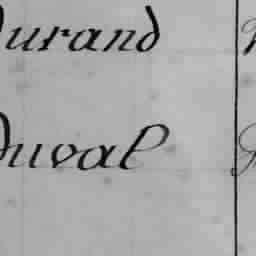 Durand
Duval